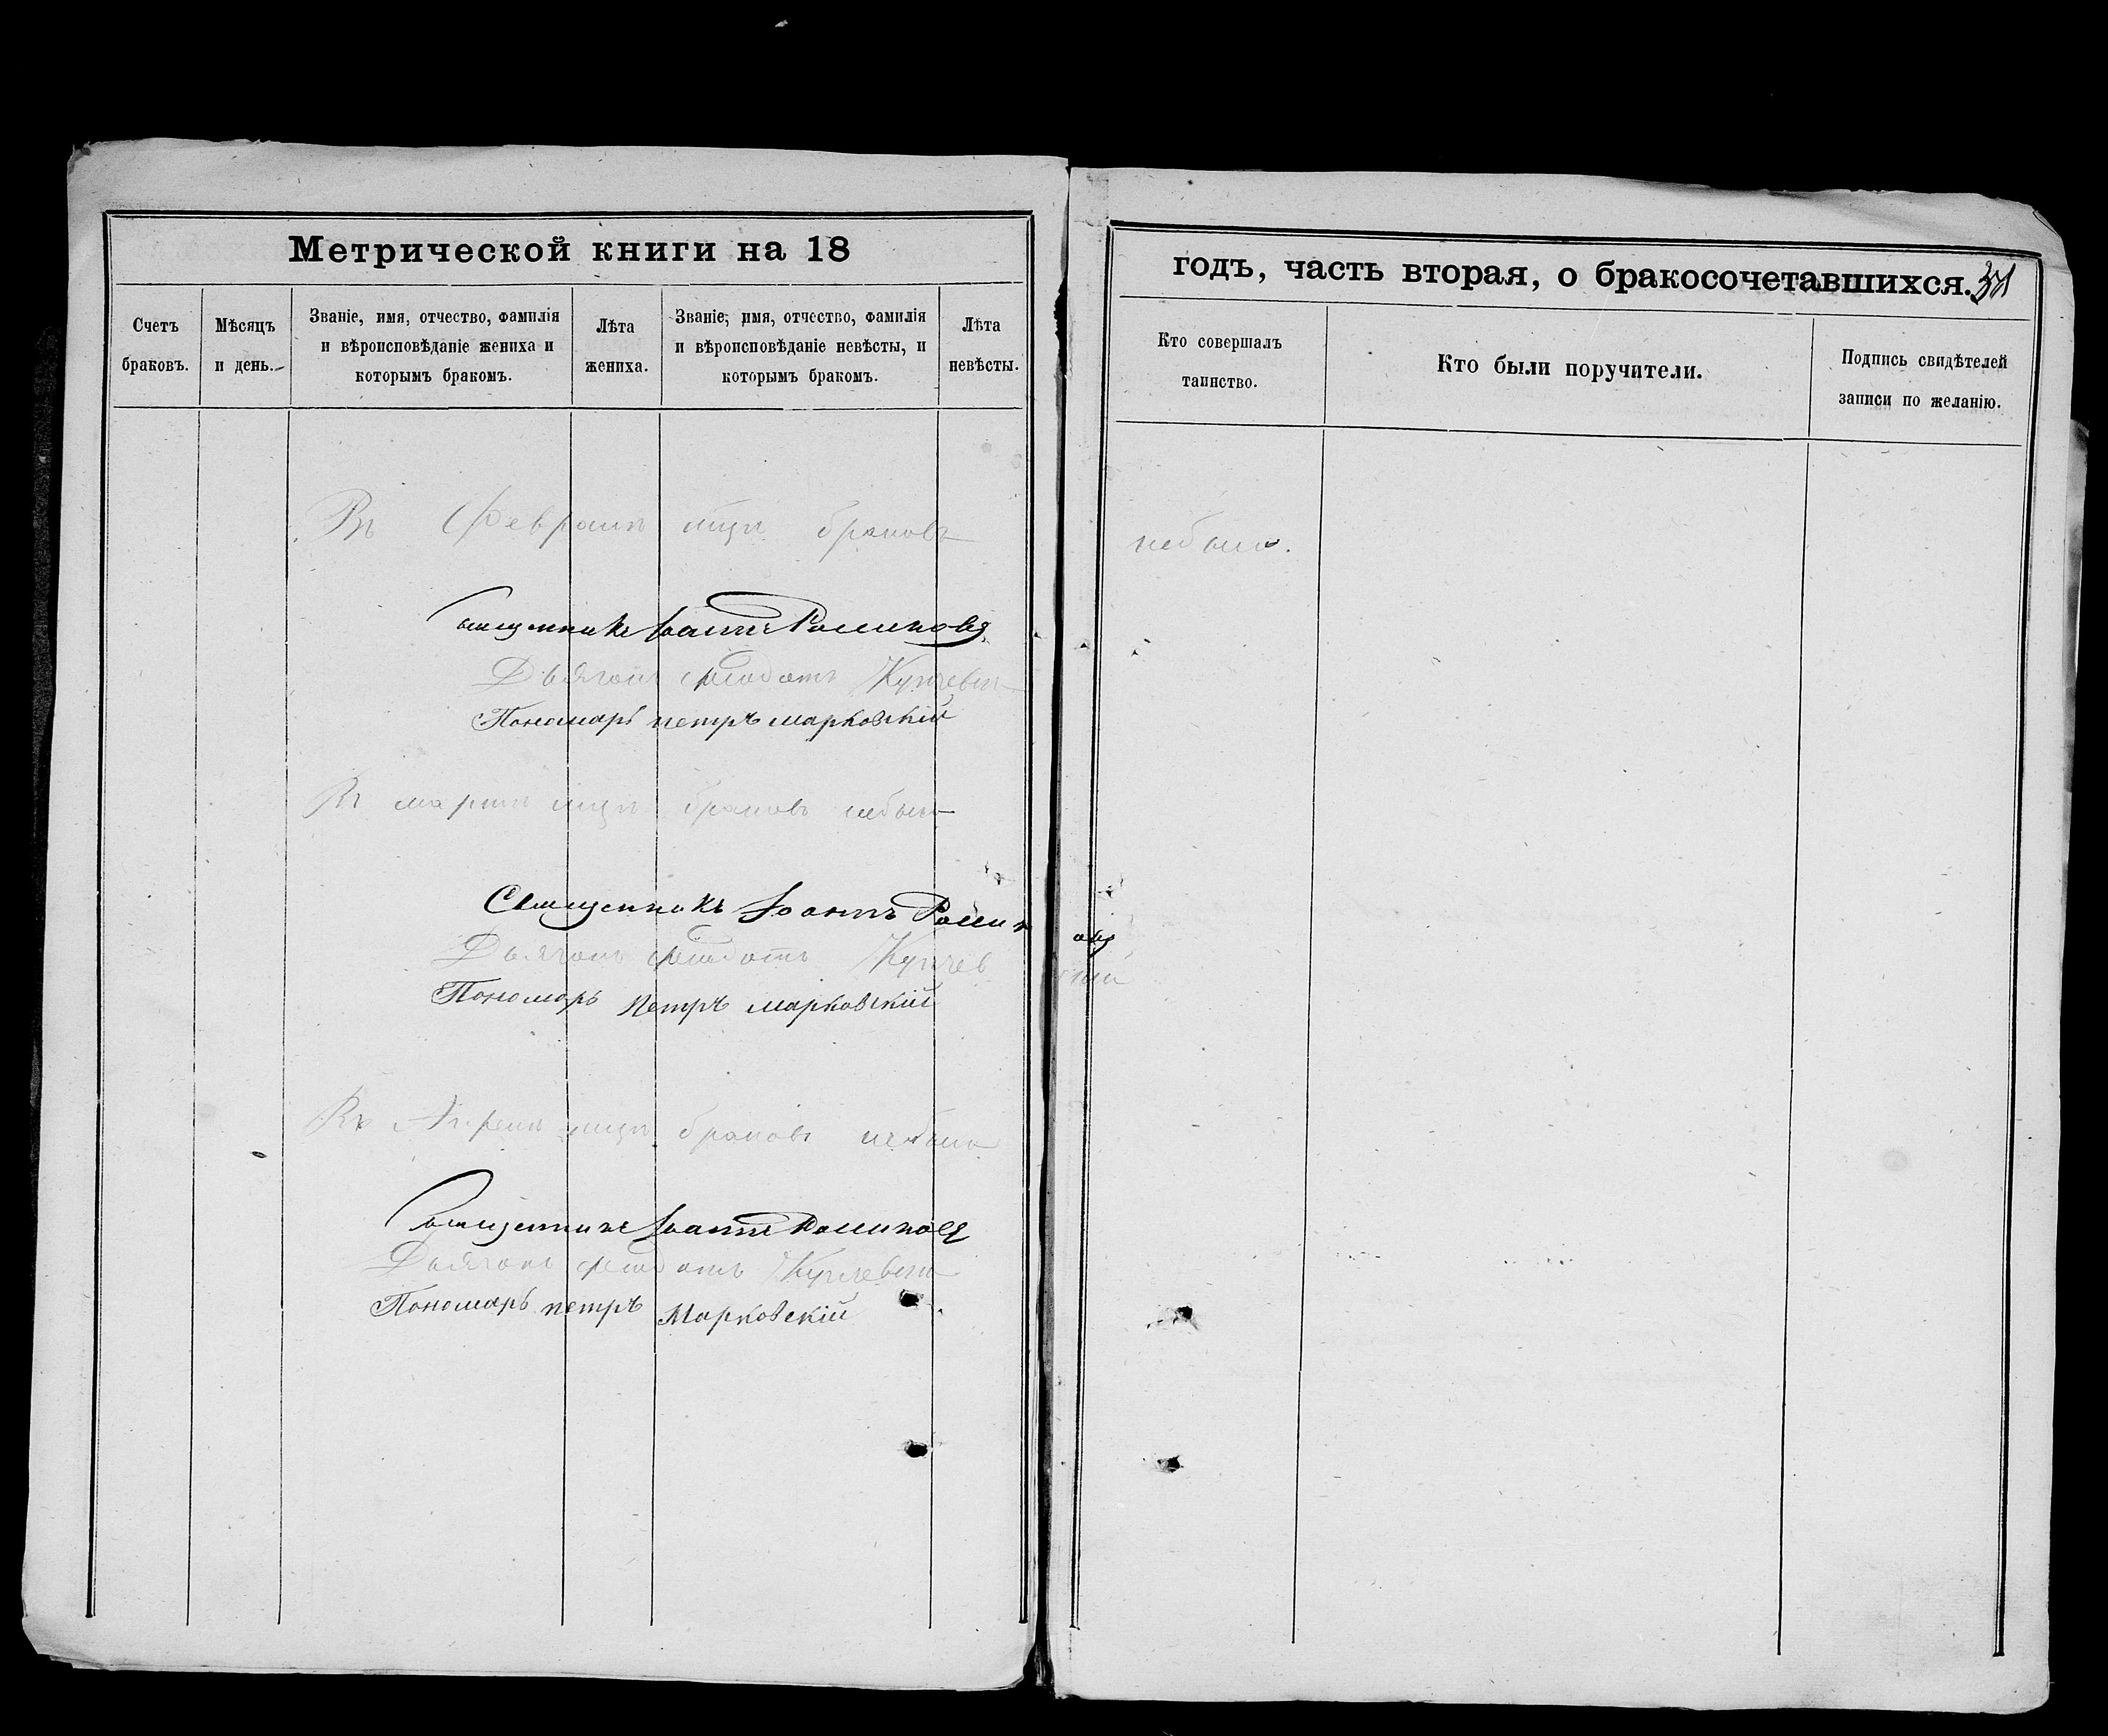 Метрической книги на 18
годъ, часть вторая, о бракосочетавшихся.
Счетъ браковъ.
Мѣсяцъ и день.
Званіе, имя, отчество, фамилія и вѣроисповѣданіе жениха и которымъ бракомъ.
Лѣта жениха.
Званіе, имя, отчество, фамилія и вѣроисповѣданіе невѣсты, и которымъ бракомъ.
Лѣта невѣсты.
Кто совершалъ таинство.
Кто были поручители.
Подпись свидѣтелей записи по желанію.
Въ Февралѣ мцѣ браковъ небыло.
Священникъ Іоаннъ
Дьячокъ Феодотъ
Пономарь петръ марковскій
Въ мартѣ мцѣ браковъ небыло
Священникъ Іоаннъ
Дьячокъ Феодотъ
Пономарь Петръ марковскій
Въ Апрелѣ мцѣ браковъ небыло
Священникъ Іоаннъ
Дьячокъ Феодотъ
Пономарь петръ Марковскій